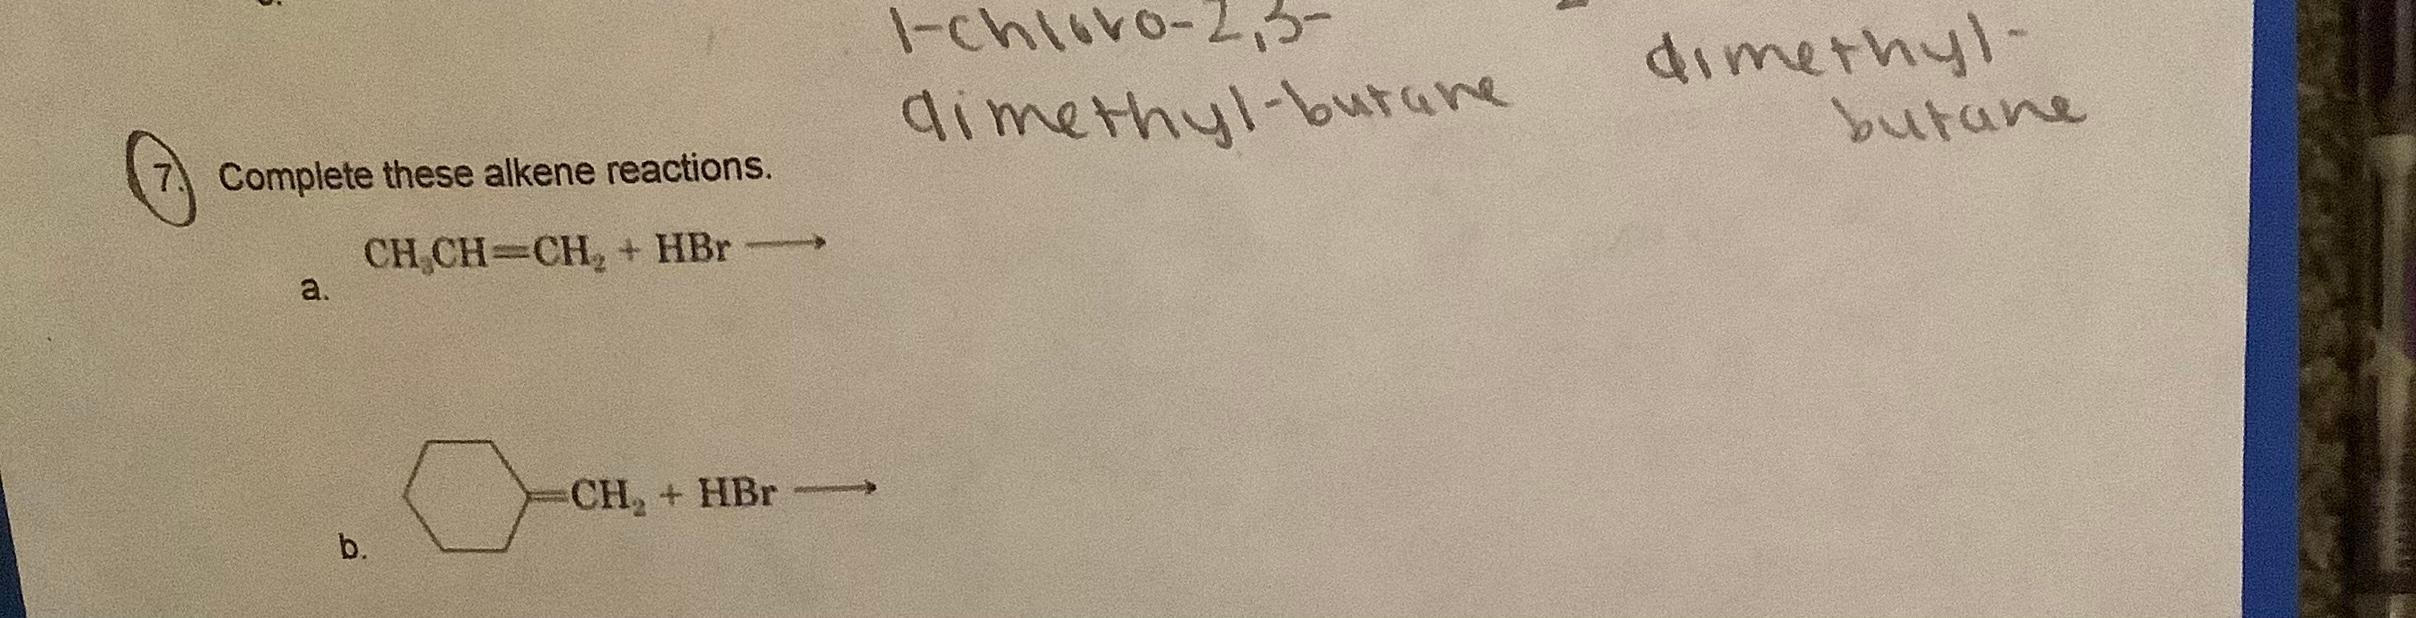 1-chloro-2,3-
dimethyl-butane
dimethyl-
butane
7. Complete these alkene reactions.
CH₃CH=CH₂ + HBr ⟶
a.
=CH₂ + HBr ⟶
b.